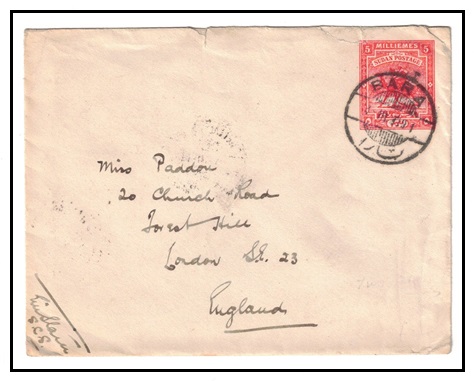 5 MILLIEMES 5
SUDAN POSTAGE
BARA
Miss Paddon
20 Church Road
Forest Hill
London S.E. 23
England